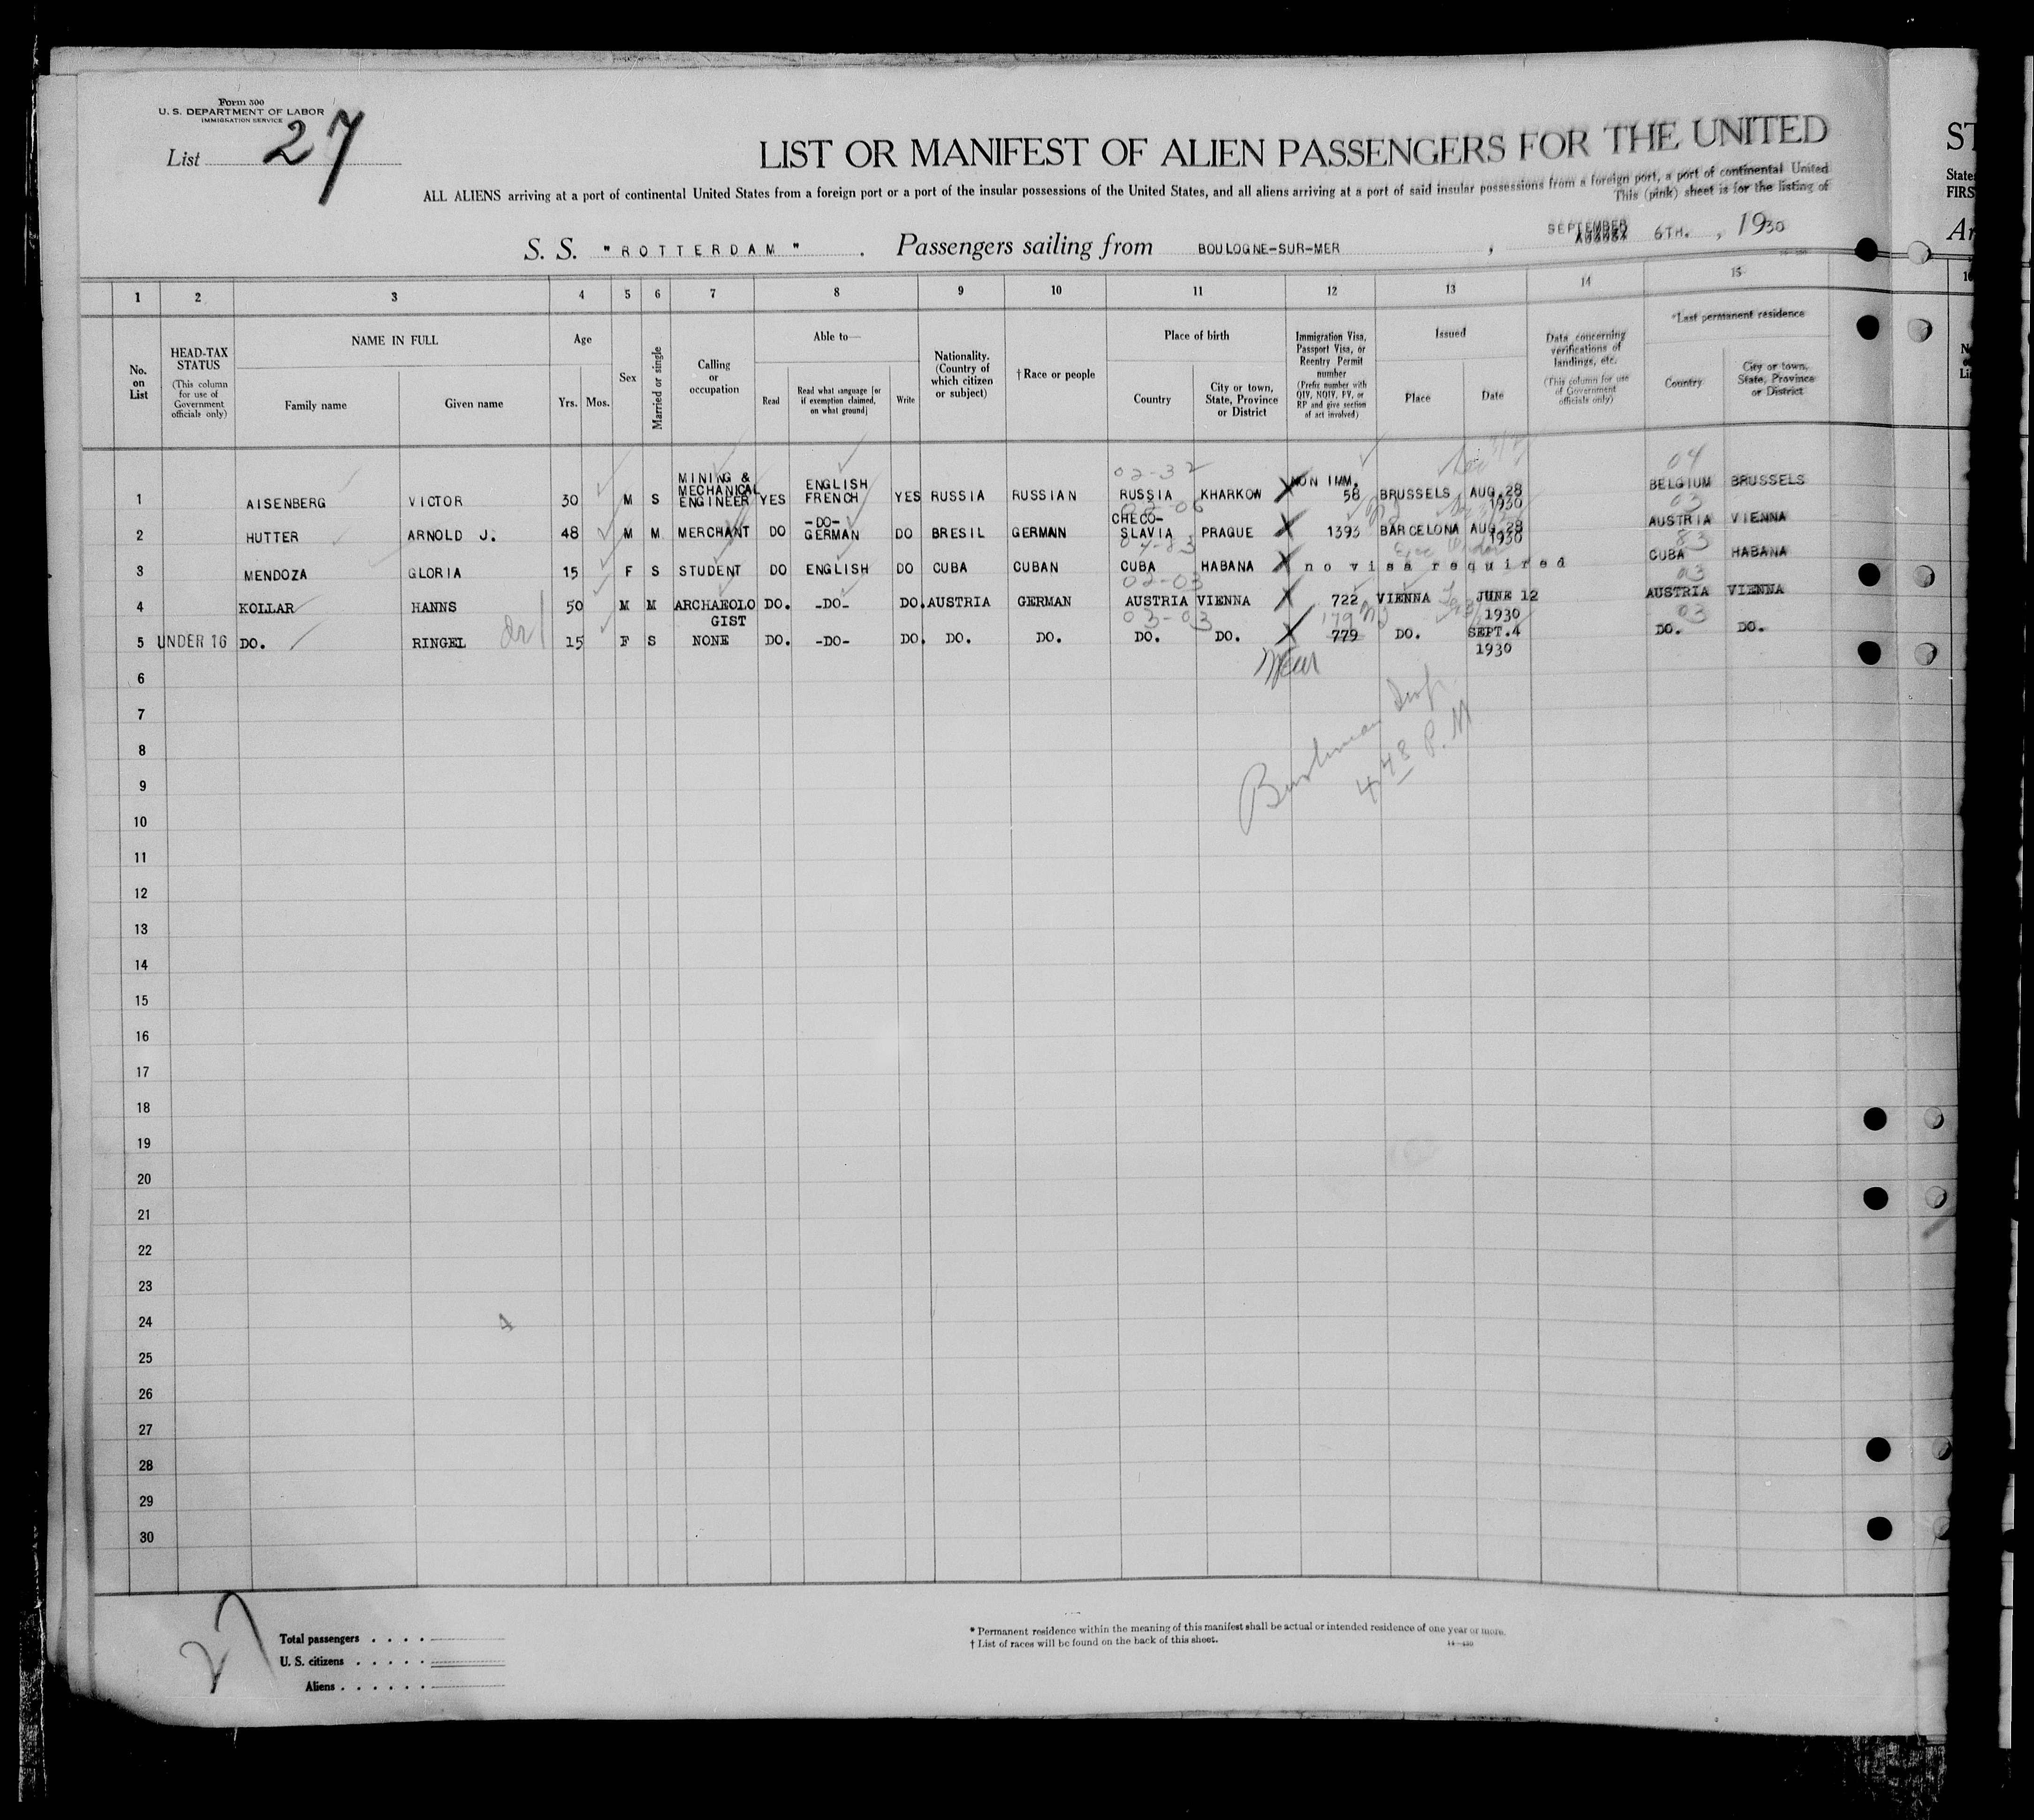 Form 500
U. S. DEPARTMENT OF LABOR
IMMIGRATION SERVICE
List 27
LIST OR MANIFEST OF ALIEN PASSENGERS FOR THE UNITED
ST
ALL ALIENS arriving at a port of continental United States from a foreign port or a port of the insular possessions of the United States, and all aliens arriving at a port of said insular possessions from a foreign port, a port of continental United
State
This (pink) sheet is for the listing of
FIRS
S. S. "ROTTERDAM". Passengers sailing from BOULOGNE-SUR-MER, SEPTEMBER 6TH., 1930
Ar
1 2 3 4 5 6 7 8 9 10 11 12 13 14 15
No. on List
HEAD-TAX STATUS
(This column for use of Government officials only)
NAME IN FULL
Family name
Given name
Age
Yrs.
Mos.
Sex
Married or single
Calling or occupation
Able to—
Read
Read what language [or if exemption claimed, on what ground]
Write
Nationality. (Country of which citizen or subject)
† Race or people
Place of birth
Country
City or town, State, Province or District
Immigration Visa, Passport Visa, or Reentry Permit number
(Prefix number with QIV, NQIV, PV, or RP and give section of act involved)
Issued
Place
Date
Data concerning verifications of landings, etc.
(This column for use of Government officials only)
*Last permanent residence
Country
City or town, State, Province or District
02-32
04
1 AISENBERG VICTOR 30 M S MINING & MECHANICAL ENGINEER YES ENGLISH FRENCH YES RUSSIA RUSSIAN RUSSIA KHARKOW NON IMM. 58 BRUSSELS AUG.28 1930 BELGIUM BRUSSELS
03
2 HUTTER ARNOLD J. 48 M M MERCHANT DO -DO- GERMAN DO BRESIL GERMAN CHECO-SLAVIA PRAGUE 1393 BARCELONA AUG.28 1930 AUSTRIA VIENNA
83
3 MENDOZA GLORIA 15 F S STUDENT DO ENGLISH DO CUBA CUBAN CUBA HABANA no visa required CUBA HABANA
02-03
03
4 KOLLAR HANNS 50 M M ARCHAEOLOGIST DO. -DO- DO. AUSTRIA GERMAN AUSTRIA VIENNA 722 VIENNA JUNE 12 1930 AUSTRIA VIENNA
03-03
03
5 UNDER 16 DO. RINGEL 15 F S NONE DO. -DO- DO. DO. DO. DO. DO. 779 DO. SEPT.4 1930 DO. DO.
6
7
8
9
4 48 P.M
10
11
12
13
14
15
16
17
18
19
20
21
22
23
24
4
25
26
27
28
29
30
27
Total passengers
U. S. citizens
Aliens
* Permanent residence within the meaning of this manifest shall be actual or intended residence of one year or more.
† List of races will be found on the back of this sheet.